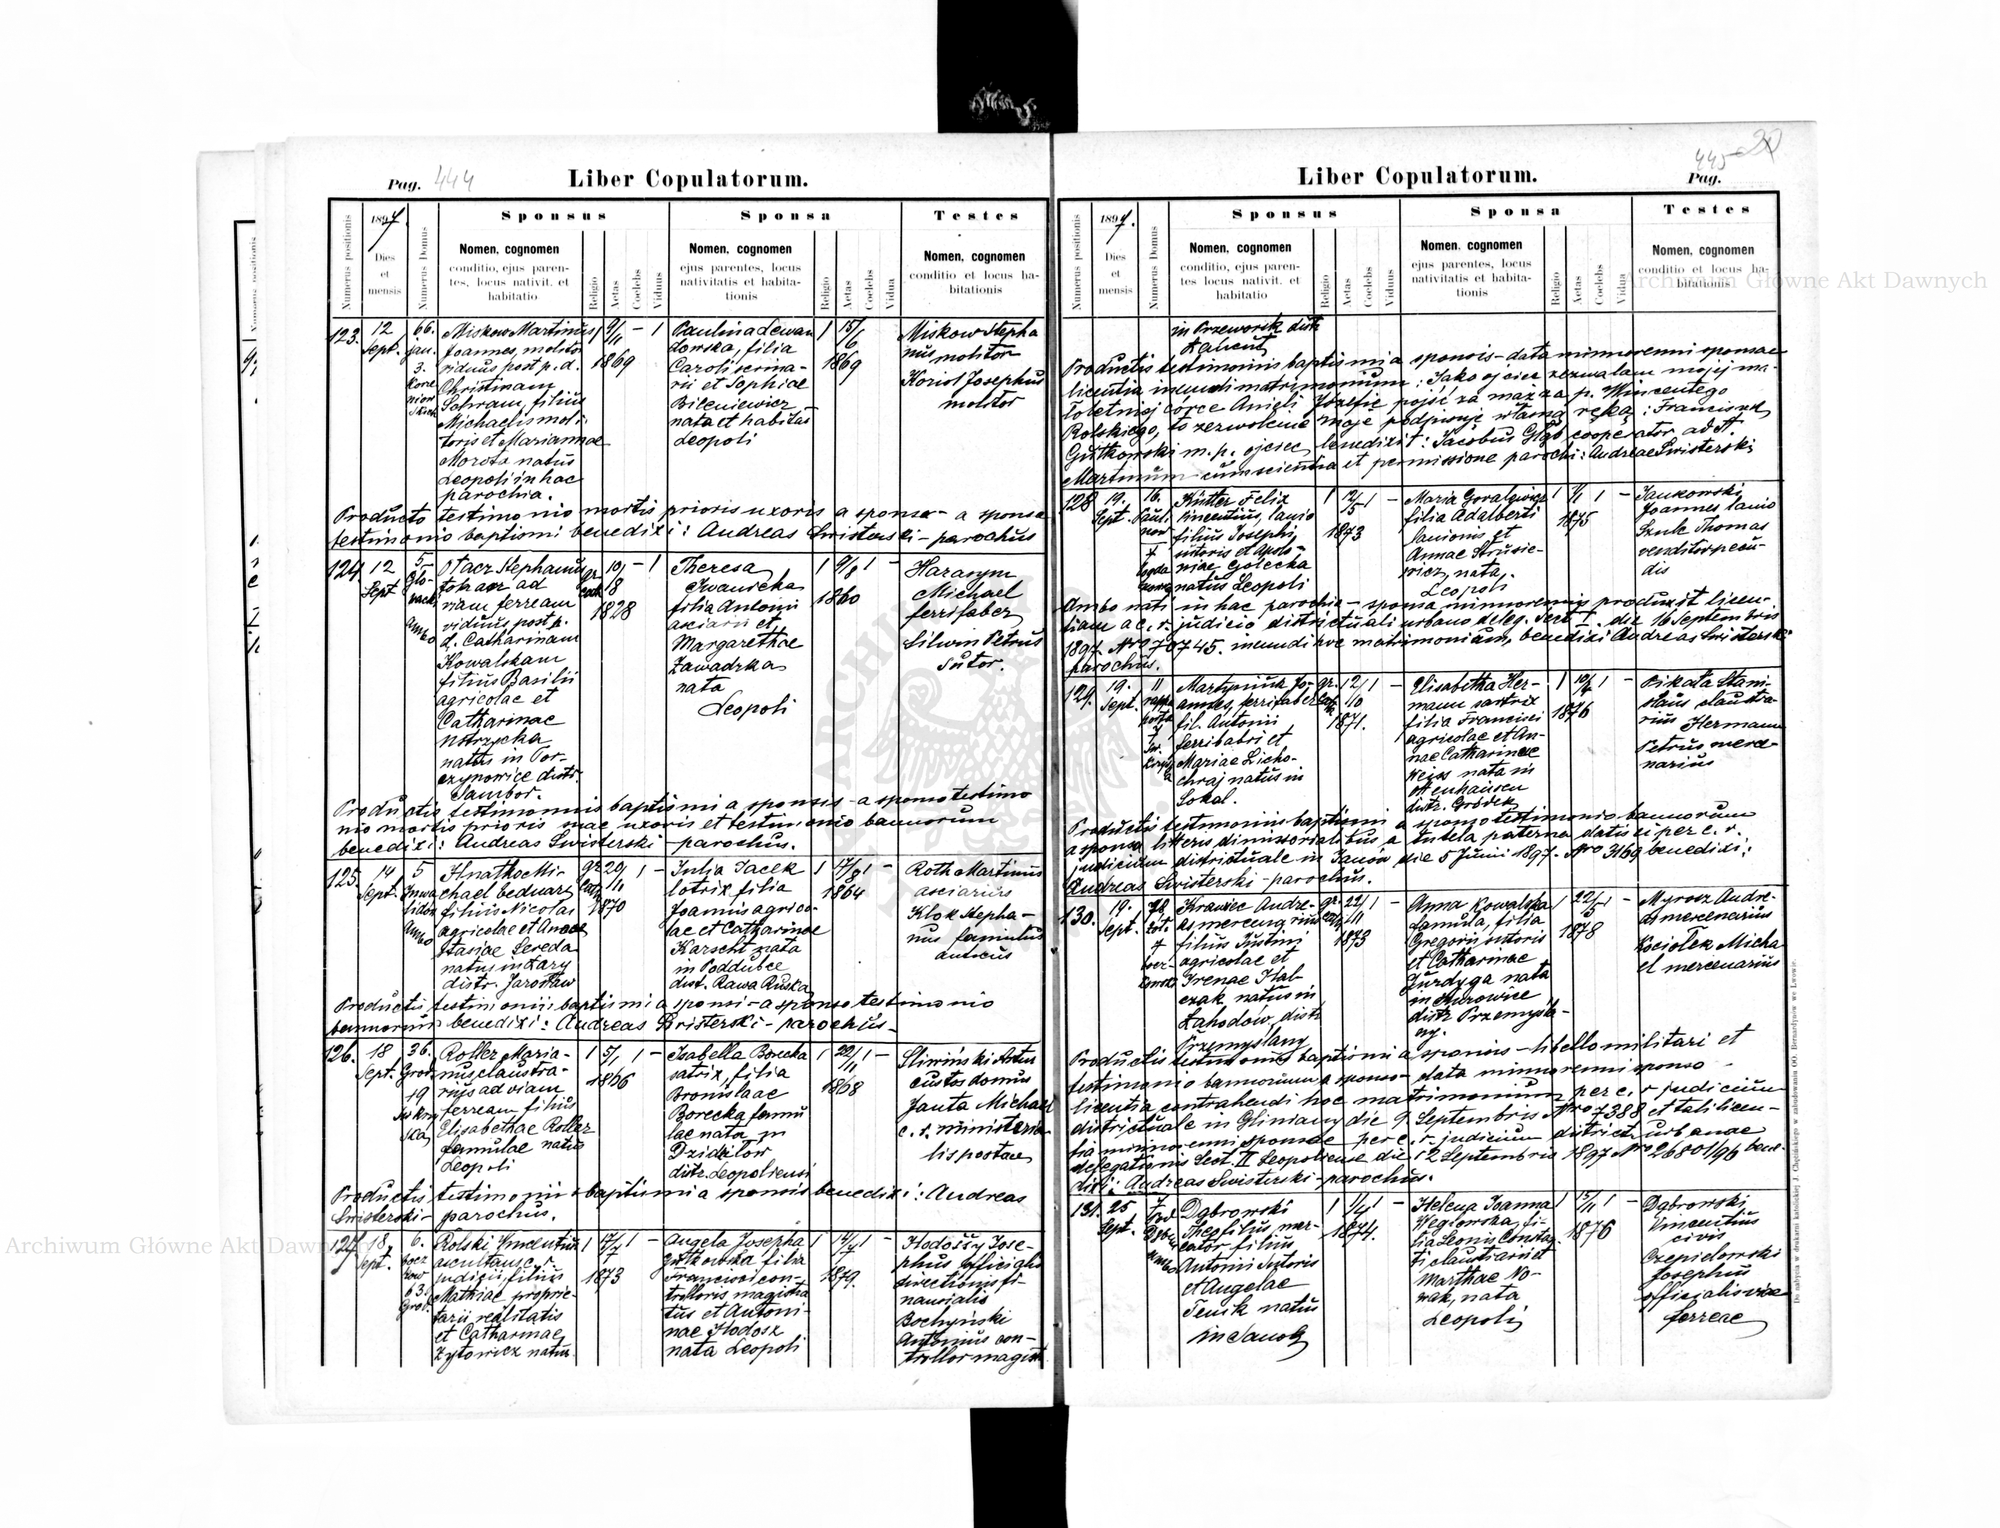 Pag. 444
Liber Copulatorum.
Numerus positionis
1897.
Dies
et
mensis
Numerus Domus
Sponsus
Nomen, cognomen
conditio, ejus paren-
tes, locus nativit. et
habitatio
Religio
Aetas
Coelebs
Viduus
Sponsa
Nomen, cognomen
ejus parentes, locus
nativitatis et habita-
tionis
Religio
Aetas
Coelebs
Vidua
Testes
Nomen, cognomen
conditio et locus ha-
bitationis
123.
12
Sept.
66.
jan.
3.
Miskow Martinus
Joannes, molitor
viduus post p. d.
Christinam
Schram, filius
Michaelis moli-
toris et Mariannae
Morota natus
Leopoli in hac
parochia.
1
9/11
1869
-
1
Paulina Lewan
dowska, filia
Caroli scrina-
rii et Sophiae
Bileniewicz
nata et habitas
Leopoli
1
15/6
1869
Miskow Stepha
nus molitor
Koziol Josephus
molitor
Producto testimonio mortis prioris uxoris a sponso - a sponsa
testimonio baptismi benedixi: Andreas Swisterski - parochus
124.
12
Sept
5
Glo-
wack
ambo
Otacz Stephanus
ad
viam ferream
viduus post p.
d. Catharinam
Kowalskam
filius Basilii
agricolae et
Catharinae
Nstrzycka
natus in Tor-
czynowice distr.
Sambor.
gr
cath
10/18
1828
-
1
Theresa
Iwanicka
filia Antonii
asciarii et
Margarethae
Zawadzka
nata
Leopoli
1
9/8
1860
1
-
Harasym
Michael
ferrifaber
Silwin Petrus
sutor.
Productis testimoniis baptismi a sponsis - a sponso testimo
nio mortis prioris suae uxoris et testimonio bannorum
benedixi: Andreas Swisterski - parochus.
125.
14
Sept.
5
Inwa
lidów
ambo
Hnatko Mi-
chael bednarz
filius Nicolai
agricolae et Anas
tasiae Sereda
natus in Lazy
distr. Jarosław
gr
cath
29/11
1870
1
-
Julia Jacek
lotrix, filia
Joannis agrico-
lae et Catharinae
Karscht nata
in Poddubce
dist. Rawa Ruska
1
17/8
1864
1
-
Roth Martinus
asciarius
Klok Stepha-
nus famulus
aulicus
Productis testimoniis baptismi a sponsis - a sponso testimonio
bannorum benedixi: Andreas Swisterski - parochus -
126.
18
Sept.
36.
Grod.
19
Roller Maria-
nus claustra-
rius ad viam
ferream filius
Elisabethae Roller
famulae natus
Leopoli
1
5/1
1866
1
-
Isabella Borecka
satrix, filia
Bronislaae
Borecka famu
lae nata in
Dzidziłow
distr. Leopoliensi
1
22/11
1868
1
-
Sliwiński Artus
custos domus
Janta Michael
c. r. ministeria
lis postae
Productis testimoniis baptismi a sponsis benedixi: Andreas
Swisterski - parochus.
127.
18.
Sept.
6.
63.
Grod.
Rolski Vincentius
ascultans c. r.
judicii, filius
Mathiae proprie-
tarii realitatis
et Catharinae
Zytowicz natus
1
17/7
1873
1
-
Angela Josepha
Gutkowska filia
Francisci con-
trolloris magistra
tus et Antoni-
nae Hodosz
nata Leopoli
1
14/7
1879.
1
-
Hodoszy Jose-
phus officialis
directionis fi-
nansialis
Bochyński
Antonius con-
trollor magist.
445 20
Pag.
Liber Copulatorum.
Numerus positionis
1897.
Dies
et
mensis
Numerus Domus
Sponsus
Nomen, cognomen
conditio, ejus paren-
tes, locus nativit. et
habitatio
Religio
Aetas
Coelebs
Viduus
Sponsa
Nomen, cognomen
ejus parentes, locus
nativitatis et habita-
tionis
Religio
Aetas
Coelebs
Vidua
Testes
Nomen, cognomen
conditio et locus ha-
bitationis
in Przeworsk distr
Łańcut
Productis testimoniis baptismi a sponsis - data minorenni sponsae
licentia ineundi matrimonium: Jako ojciec zezwalam mojej ma-
łoletniej córce Anieli Józefie pójść za mąż za p. Wincentego
Rolskiego, to zezwolenie moje podpisuję własną ręką: Franciszek
Gutkowski m. p. ojciec, benedixit: Jacobus Głąb cooperator ad St.
Martinum cum scientia et permissione parochi: Andreae Swisterski
128
19.
Sept.
16.
Pauli
nów
Küttler Felix
Vincentius, lanio
filius Josephi
sutoris et Apolo-
niae Golecka
natus Leopoli
1
12/5
1873
1
-
Maria Goralewicz
filia Adalberti
lanionis et
Annae Strusie-
wicz, nata,
Leopoli
1
1/11
1875
1
-
Jankowski
Joannes lanio
Szulc Thomas
venditor pecu-
dis
Ambo nati in hac parochia - sponsa minorennis produxit licen-
tiam a c. r. judicio districtuali urbano deleg. Sect I. die 16 Septembris
1897. Nro 70745. ineundi hoc matrimonium, benedixi Andreas Swisterski
parochus.
129.
19.
Sept.
11
rappa
porta
Martyniuk Jo-
annes, ferrifaber
fil. Antonii
ferrifabri et
Mariae Licho-
chraj natus in
Sokal.
gr.
cath
12/10
1871.
1
-
Elisabetha Her-
mann sartrix
filia Francisci
agricolae et An-
nae Catharinae
Weiss nata in
Ottenhausen
distr. Gródek
1
10/4
1876
1
-
Pikata Stani-
slaus claustra-
rius Hermann
Petrus merce-
narius
Productis testimoniis baptismi a sponso testimonio bannorum
a sponsa litteris dimissorialibus a tutela paterna datis ei per c. r.
judicium districtuale in Janów die 5 Junii 1897. Nro 3169 benedixi:
Andreas Swisterski - parochus.
130.
19.
Sept.
Krawiec Andre-
as mercenarius
filius Justini
agricolae et
Irenae Hab
czak natus in
Zahodow, distr
Przemyslany
gr.
cath
22/11
1873
1
-
Anna Kowalska
famula, filia
Gregorii sutoris
et Catharinae
Zurdyga nata
in Kurowice
distr Przemysla-
ny.
1
22/5
1878
1
-
Myrosz Andre-
as mercenarius
Kociołek Micha
el mercenarius
Productis testimoniis baptismi a sponsis - libello militari et
testimonio bannorum a sponso - data minorenni sponso
licentia contrahendi hoc matrimonium per c. r. judicium
districtuale in Gliniany die 9. Septembris Nro 7388 et tali licen-
tia minorenni sponsae per c. r. judicium district. urbanae
delegationis Sect. II Leopoliense die 12 Septembris 1897 Nro 26801/96 bene-
dixi: Andreas Swisterski - parochus.
131.
25
Sept.
Dąbrowski
Theofilus mer-
cator filius
Antonii sutoris
et Angelae
Tenik natus
in Sanok
1
1/4
1874.
1
-
Helena Joanna
Węglowska, fi-
lia Leonis Consta
ti claustiarii et
Marthae No-
wak, nata
Leopoli
1
13/11
1876
1
-
Dąbrowski
Vincentius
civis
Czepielowski
Josephus
officialis viae
ferreae
Do nabycia w drukarni katolickiej J. Chęcińskiego w zabudowaniu OO. Bernardynów we Lwowie.
Archiwum Główne Akt Dawnych
Archiwum Główne Akt Dawnych